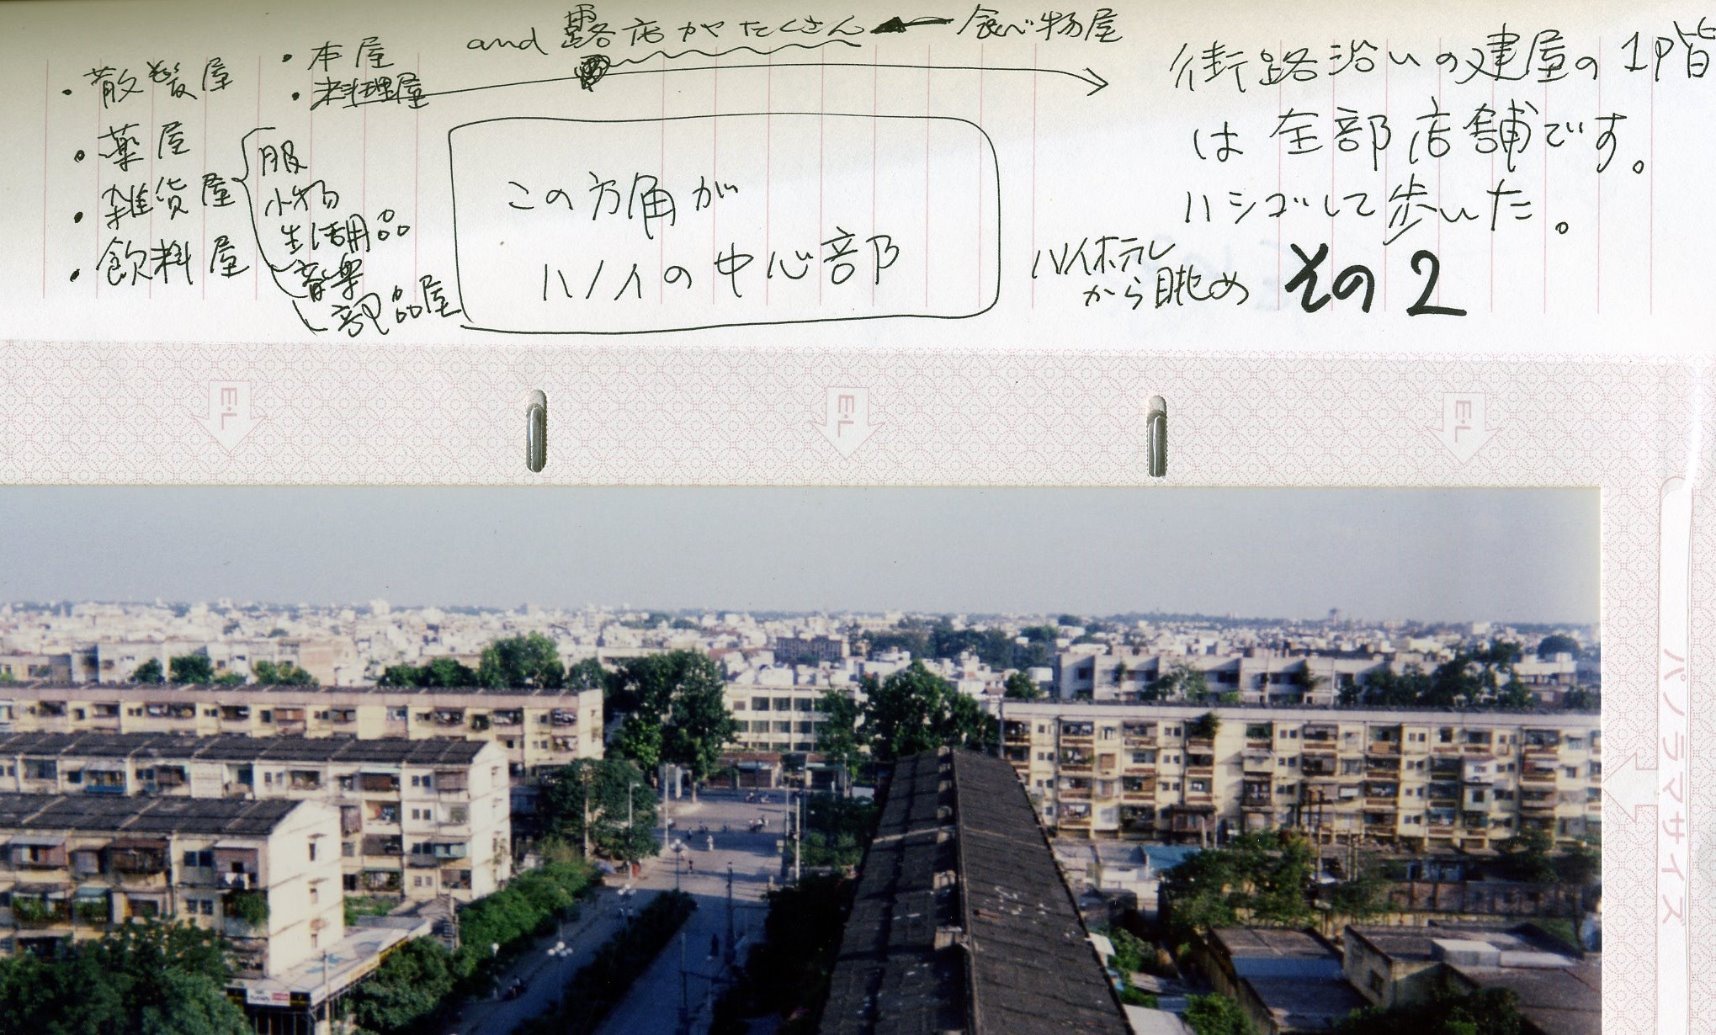 and 露店がたくさん ← 食べ物屋
・散髪屋
・薬屋
・雑貨屋
・飲料屋
・本屋
・料理屋
服
小物
生活用品
音楽
部品屋
この方角が
ハノイの中心部
街路沿いの建屋の1階
は全部店舗です。
ハシゴして歩いた。
ハノイホテル
から眺め その2
E・L
E・L
E・L
パノラマサイズ